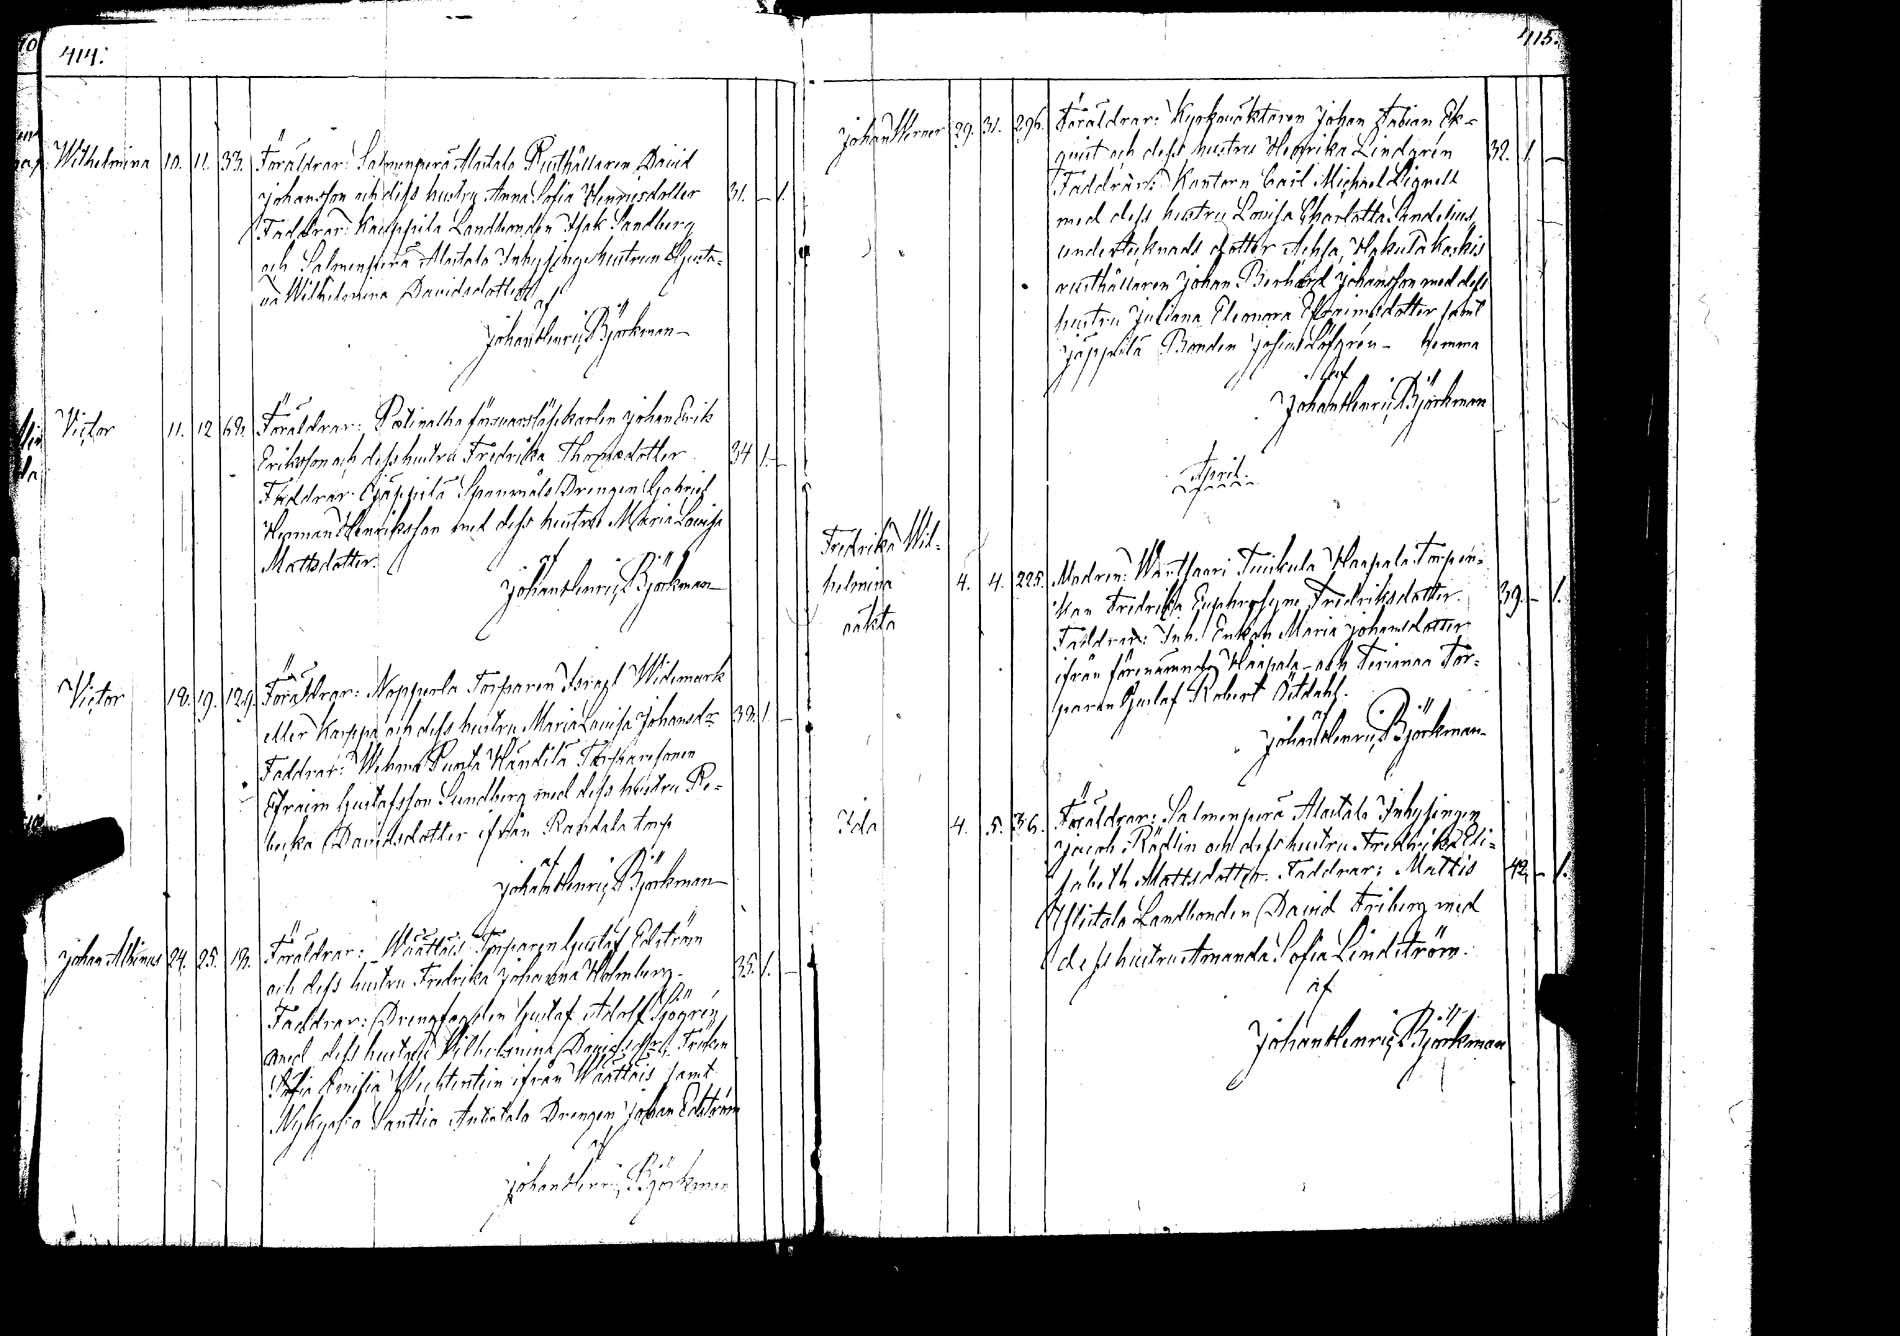 414.
Wilhelmina 10. 11. 33. Föräldrar: Salmenperä Alaitalo Rusthållaren David
Johansson och dess hustru Anna Sofia Henricsdotter 31. – 1.
Faddrar: Kauppila Landbonden Isak Sandberg
och Salmenperä Alaitalo Inhysinge hustrun Gusta-
va Wilhelmina Davidsdotter
af
Johan Henric Björkman
Victor 11. 12 Föräldrar: försvarslöse karlen Johan Erik
Eriksson och dess hustru Fredrika Thomædotter 34 1. –
Faddrar: Jäppilä Spanmåls Drengen Gabriel
Herman Henriksson med dess hustru Maria Lovisa
Mattsdotter.
af
Johan Henric Björkman
Victor 18. 19. 129. Föräldrar: Nopperla Torparen Israel Widemark
eller Karppa och dess hustru Maria Lovisa Johansdr 1. –
Faddrar: Wehmä Torparesonen
Efraim Gustafsson Sundberg med dess hustru Re-
becka Davidsdotter ifrån torp
af
Johan Henric Björkman
Johan Albinus 24. 25. Föräldrar: Waattais Torparen Gustaf Edström
och dess hustru Fredrika Johanna Holmberg. 35. 1. –
Faddrar: Drengfogden Gustaf Adolf Sjögrén,
med dess hustru Vilhelmina Fröken
Sofia Emilia ifrån Waattais samt
Santtio Antatalo Drengen Johan Edström
af
Johan Henric Björkman
415.
Johan Werner 29. 31. 296. Föräldrar: Kyrkovaktaren Johan Fabian Ek-
quist och dess hustru Henrika Lindgrén 32. 1. –
Faddrar: Kantorn Carl Michael Lignell
med dess hustru Lovisa Charlotta Sandelius,
undertecknads dotter Achsa,
rusthållaren Johan Berhard Johansson med dess
hustru Juliana Eleonora Efraimsdotter samt
Jäppilä Bonden Josua Löfgrén – Hemma
af
Johan Henric Björkman
April.
Fredrika Wil-
helmina 4. 4. 225. Modren: Wartsaari Tuukula Haapala Torpen-
kan Fredrika Euphrosyne Fredriksdotter. 39. – 1.
oäkta
Faddrar: Inh. Enkan Maria Johansdotter
ifrån förenämnde Haapala och Tor-
paren Gustaf Robert Öitdahl.
af
Johan Henric Björkman
Ida 4. 5. 36. Föräldrar: Salmenperä Alaitalo Inhysingen
Jacob Rödlin och dess hustru Fredrika Eli-
sabeth Mattsdotter. Faddrar: Mattis 42. – 1.
Ylistalo Landbonden David Friberg med
dess hustru Amanda Sofia Lindström.
af
Johan Henric Björkman